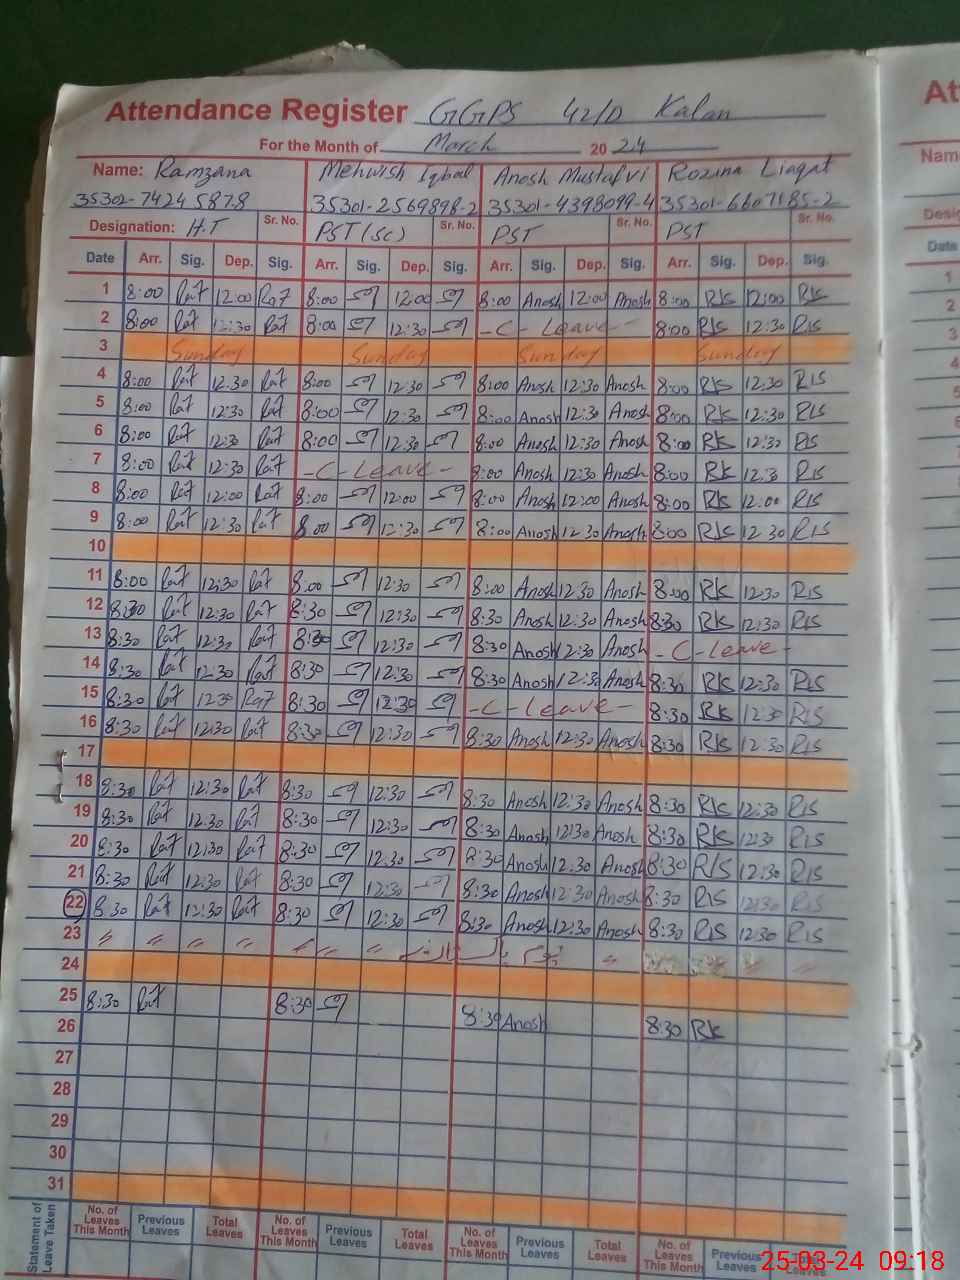 Attendance Register GGPS 42/D Kalan
For the Month of March 20 24
Name: Ramzana Mehwish Iqbal Anosh Mustafvi Rozina Liaqat
35302-7424587-8 35301-2569898-2 35301-4398099-4 35301-6607185-2
Designation: H.T Sr. No. PST (SC) Sr. No. PST Sr. No. PST Sr. No.
Date Arr. Sig. Dep. Sig. Arr. Sig. Dep. Sig. Arr. Sig. Dep. Sig. Arr. Sig. Dep. Sig.
1 8:00 Raf 12:00 Raf 8:00 12:00 8:00 Anosh 12:00 Anosh 8:00 RIS 12:00 RIS
2 8:00 Raf 12:30 Raf 8:00 12:30 -C-Leave- 8:00 RIS 12:30 RIS
3 Sunday Sunday Sunday Sunday
4 8:00 Raf 12:30 Raf 8:00 12:30 8:00 Anosh 12:30 Anosh 8:00 RIS 12:30 RIS
5 8:00 Raf 12:30 Raf 8:00 12:30 8:00 Anosh 12:30 Anosh 8:00 RIS 12:30 RIS
6 8:00 Raf 12:30 Raf 8:00 12:30 8:00 Anosh 12:30 Anosh 8:00 RIS 12:30 RIS
7 8:00 Raf 12:30 Raf -C-Leave- 8:00 Anosh 12:30 Anosh 8:00 RIS 12:30 RIS
8 8:00 Raf 12:00 Raf 8:00 12:00 8:00 Anosh 12:00 Anosh 8:00 RIS 12:00 RIS
9 8:00 Raf 12:30 Raf 8:00 12:30 8:00 Anosh 12:30 Anosh 8:00 RIS 12:30 RIS
10
11 8:00 Raf 12:30 Raf 8:00 12:30 8:00 Anosh 12:30 Anosh 8:00 RIS 12:30 RIS
12 8:30 Raf 12:30 Raf 8:30 12:30 8:30 Anosh 12:30 Anosh 8:30 RIS 12:30 RIS
13 8:30 Raf 12:30 Raf 8:30 12:30 8:30 Anosh 12:30 Anosh -C-Leave-
14 8:30 Raf 12:30 Raf 8:30 12:30 8:30 Anosh 12:30 Anosh 8:30 RIS 12:30 RIS
15 8:30 Raf 12:30 Raf 8:30 12:30 -C-Leave- 8:30 RIS 12:30 RIS
16 8:30 Raf 12:30 Raf 8:30 12:30 8:30 Anosh 12:30 Anosh 8:30 RIS 12:30 RIS
17
18 8:30 Raf 12:30 Raf 8:30 12:30 8:30 Anosh 12:30 Anosh 8:30 RIS 12:30 RIS
19 8:30 Raf 12:30 Raf 8:30 12:30 8:30 Anosh 12:30 Anosh 8:30 RIS 12:30 RIS
20 8:30 Raf 12:30 Raf 8:30 12:30 8:30 Anosh 12:30 Anosh 8:30 RIS 12:30 RIS
21 8:30 Raf 12:30 Raf 8:30 12:30 8:30 Anosh 12:30 Anosh 8:30 RIS 12:30 RIS
22 8:30 Raf 12:30 Raf 8:30 12:30 8:30 Anosh 12:30 Anosh 8:30 RIS 12:30 RIS
23 〃 〃 〃 〃 〃 〃 〃 〃 〃 〃
24
25 8:30 Raf 8:30 8:30 Anosh 8:30 RIS
26
27
28
29
30
31
Statement of Leave Taken
No. of Leaves This Month Previous Leaves Total Leaves No. of Leaves This Month Previous Leaves Total Leaves No. of Leaves This Month Previous Leaves Total Leaves No. of Leaves This Month Previous Leaves
25-03-24 09:18
Att
Name
Desig
Date
1
2
3
4